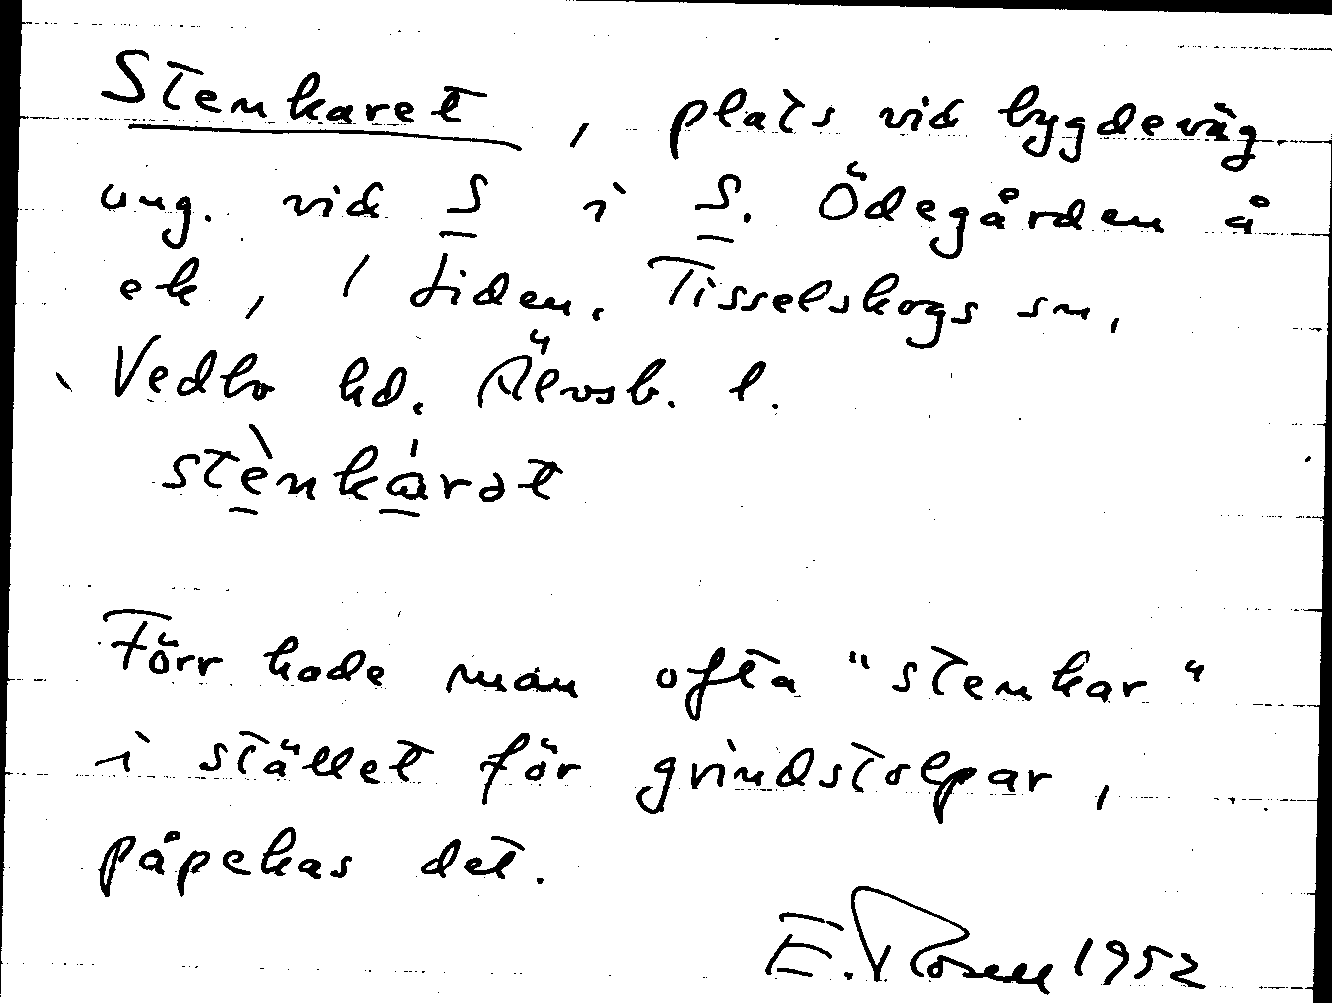 Stenkaret, plats vid bygdeväg
ung. vid S i S. Ödegården å
ek, 1 Liden. Tisselskogs sn,
Vedbo hd. Älvsb. l.
stènkárət
Förr hade man ofta "stenkar"
i stället för grindstolpar,
påpekas det.
E. Rosell 1952